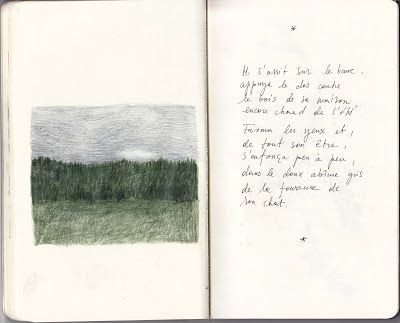 *
s'assit sur le banc,
appuya le dos contre
le bois de sa maison
encore chaud de l'été
Ferma les yeux et,
de tout son être,
s'enfonça peu à peu,
dans le doux abîme gris
de la fourrure de
son chat.
*